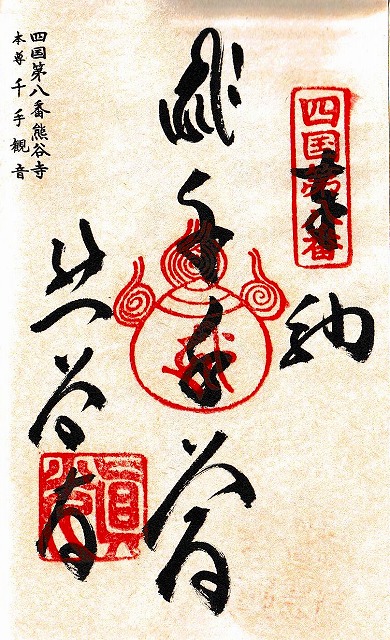 四国第八番
奉納
千手
熊谷寺
四国第八番熊谷寺
本尊 千手觀音